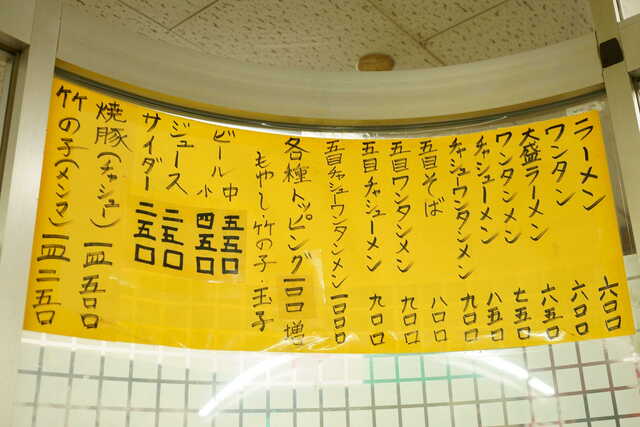 ラーメン 六〇〇
ワンタン 六〇〇
大盛ラーメン 六五〇
ワンタンメン 七五〇
チャシューメン 八五〇
チャシューワンタンメン 九〇〇
五目そば 八〇〇
五目ワンタンメン 九〇〇
五目チャシューメン 九〇〇
五目チャシューワンタンメン 一〇〇〇
各種トッピング一〇〇増
もやし・竹の子・玉子
ビール 中 五五〇
小 四五〇
ジュース 二五〇
サイダー 二五〇
焼豚(チャシュー) 一皿 五〇〇
竹の子(メンマ) 一皿 二五〇